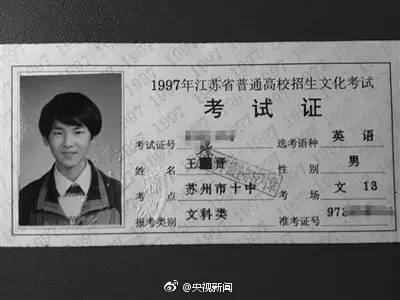 1997年江苏省普通高校招生文化考试
考试证
考试证号 选考语种 英语
姓名 王 贤 性别 男
考点 苏州市十中 考场 文13
报考类别 文科类 准考证号 973
@央视新闻